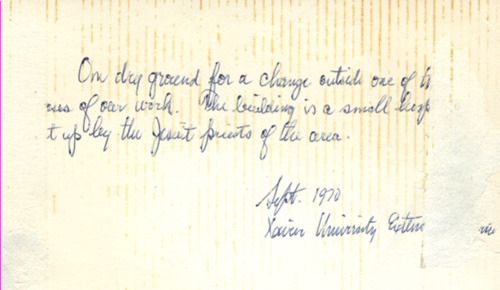 On dry ground for a change outside one of
of our work. The building is a small
t up by the Jesuit priests of the area.
Sept. 1970
Xavier University